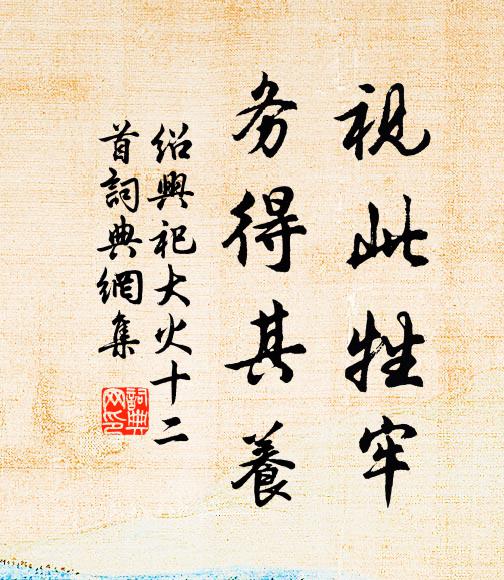 視此牲牢
务得其養
紹興祀大火十二
首詞典網集
詞典
网印